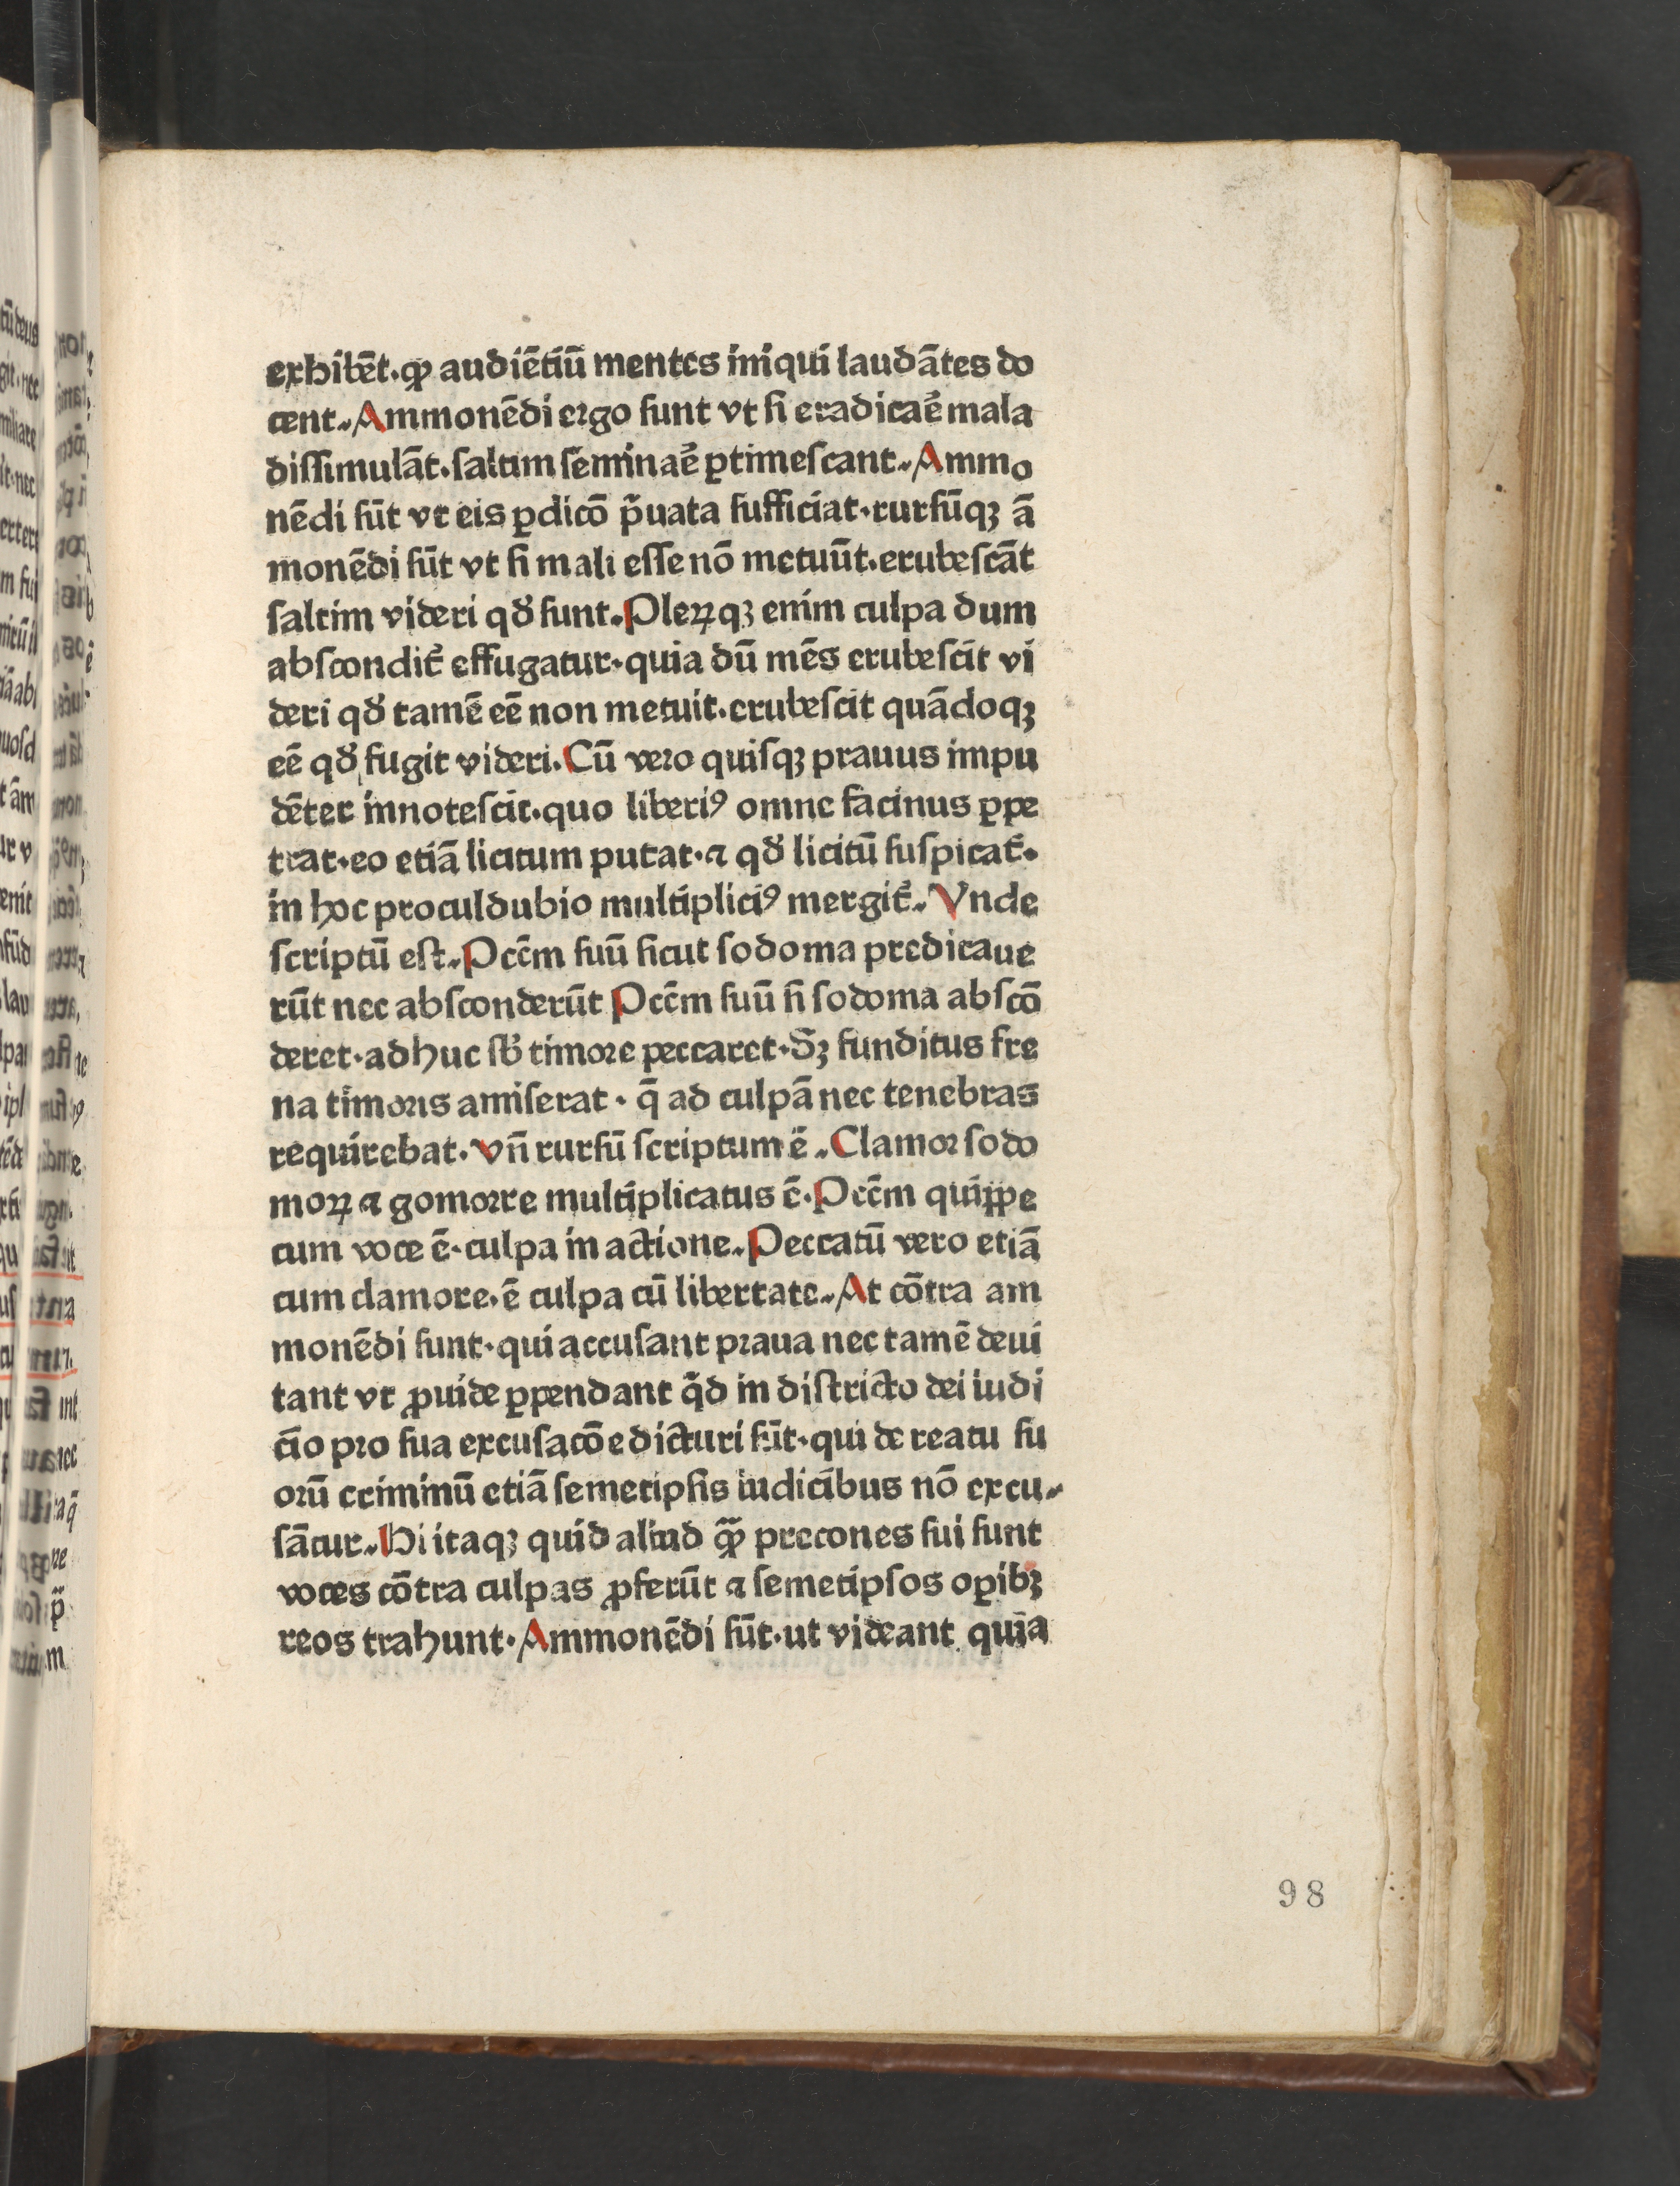 exhibēt·ꝙ audiētiū mentes iniqui laudātes do
cent· Ammonēdi ergo sunt vt si eradicaē mala
dissimulāt·saltim seminaē ꝑtimescant· Ammo
nēdi sūt vt eis ꝑdicō p̄uata sufficiat·rursūqꝫ ā
monēdi sūt vt si mali esse nō metuūt·erubescāt
saltim videri qđ sunt· Pleꝝqꝫ enim culpa dum
abscondit̄ effugatur·quia dū mēs erubescit vi
deri qđ tamē eē non metuit·erubescit quādoqꝫ
eē qđ fugit videri· Cū vero quisqꝫ prauus impu
dēter innotescit·quo liberiꝰ omne facinus ꝑpe
trat·eo etiā licitum putat·⁊ qđ licitū suspicat̄·
in hoc proculdubio multipliciꝰ mergit̄· Vnde
scriptū est· Pcc̄m suū sicut sodoma predicaue
rūt nec absconderūt Pcc̄m suū si sodoma abscō
deret·adhuc sb̄ timore peccaret·Sꝫ funditus fre
na timoris amiserat · q̄ ad culpā nec tenebras
requirebat· Vn̄ rursū scriptum ē · Clamor sodo
moꝝ ⁊ gomorre multiplicatus ē· Pcc̄m quippe
cum voce ē·culpa in actione· Peccatū vero etiā
cum clamore·ē culpa cū libertate· At cōtra am
monēdi sunt·qui accusant praua nec tamē deui
tant vt ꝓuide ꝑpendant q̇d in districto dei iudi
cio pro sua excusacōe dicturi sūt·qui de reatu su
orū criminū etiā semetipsis iudicibus nō excu-
sātur· Hi itaqꝫ quid aliud ꝙ̄ precones sui sunt
voces cōtra culpas ꝓferūt ⁊ semetipsos oꝑibꝫ
reos trahunt· Ammonēdi sūt·ut videant quia
98